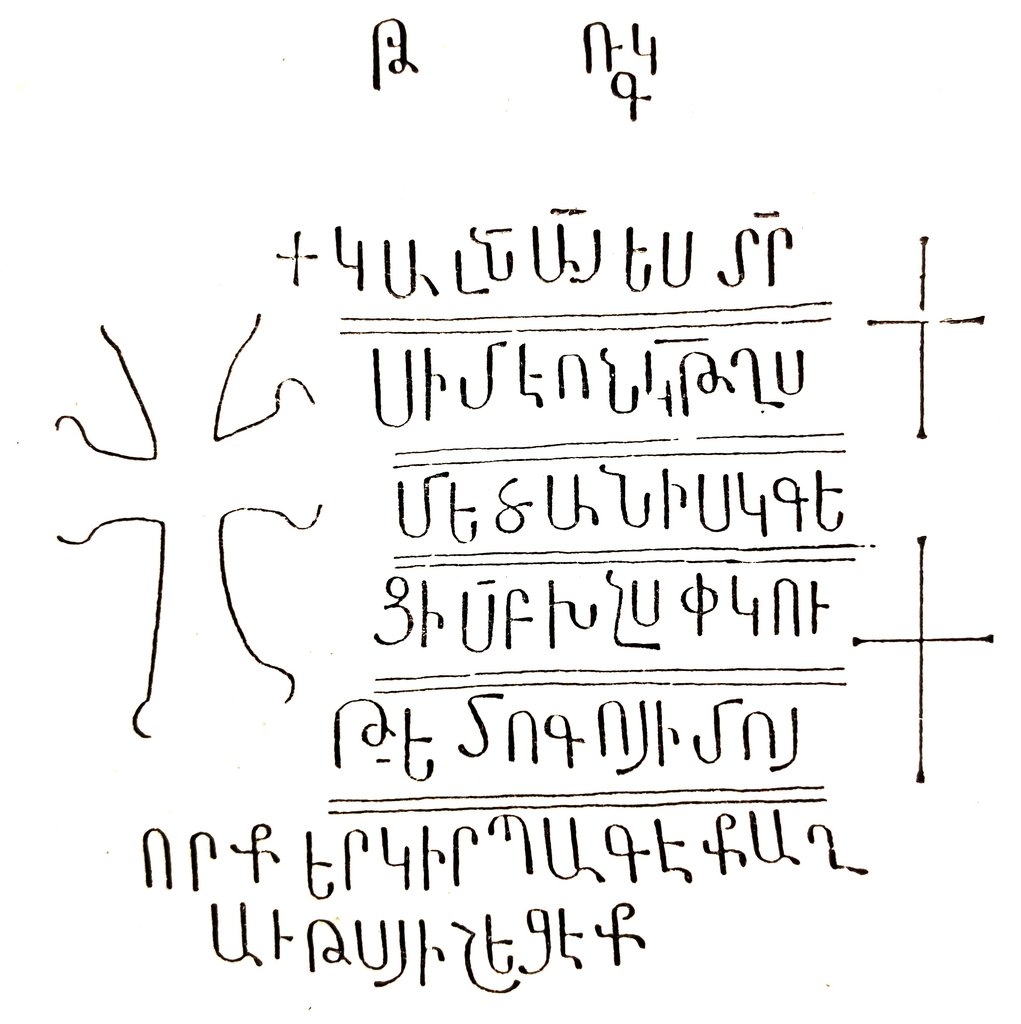 Թ ՌԿ
Գ
+ ԿԱԼՆԱՅ ԵՍ ՄՐ
ՍԻՄԷՈՆ ԿԹՂՍ
ՄԵԾԱՆԻՍԿԳԵ
ՅԻՄԲԻԽՆՍ ՓԿՈՒ
ԹԷ ՄՈԳՈՅԻՄՈՅ
ՈՐՔ ԵՐԿԻՐՊԱԳԷՔԱՂ
ԱՒԹՍՅԻՇԵՑԷՔ